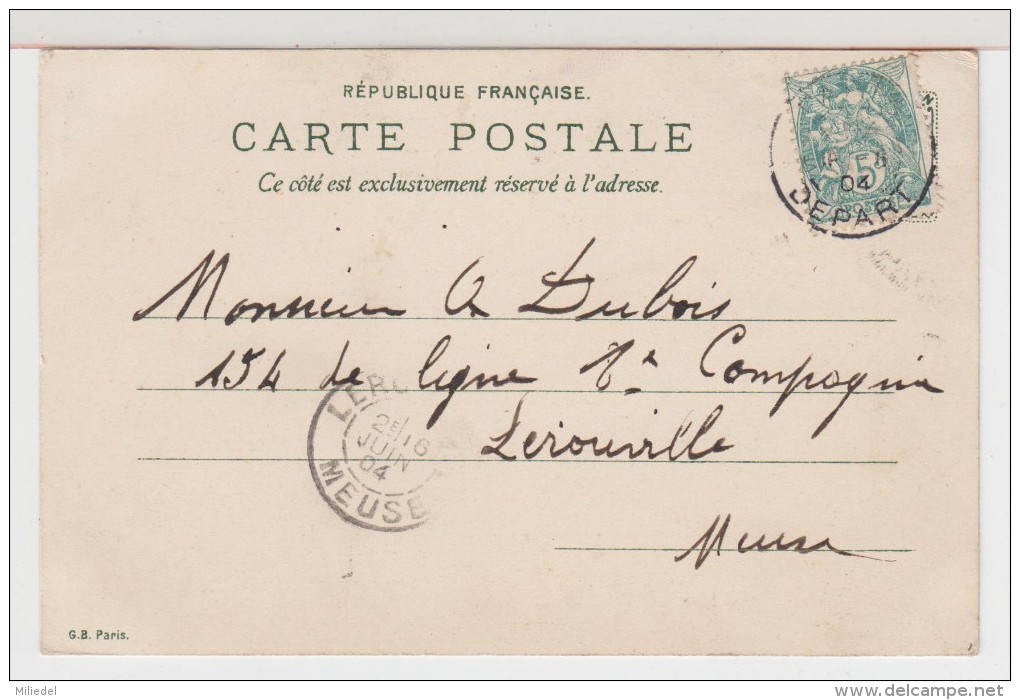 RÉPUBLIQUE FRANÇAISE.
CARTE POSTALE
Ce côté est exclusivement réservé à l'adresse.
5
04
DEPART
Monsieur Dubois
154 de ligne Compagnie
Lerouville
Meuse
LERO
2E 16
JUIN
04
MEUSE
G.B. Paris.
Miliedel
delcampe.net